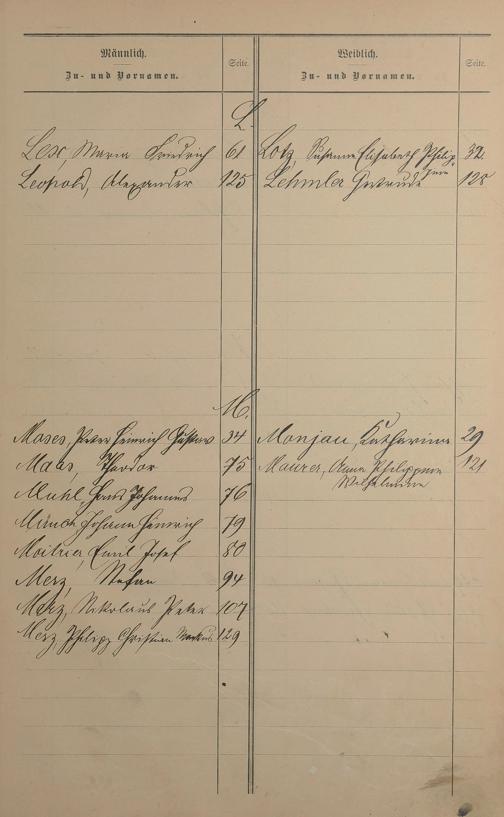 Männlich.
Zu- und Vornamen.
Seite.
Weiblich.
Zu- und Vornamen.
Seite.
L.
Lex, Maria Friedrich 61
Leopold, Alexander 125
Lotz, Susanne Elisabeth Philip- 32
pine
Lehmler Gertrude 128
M.
Moses, Peter Heinrich Gustav 34
Maas, Theodor 75
Muhl, Hans Johannes 76
Münch Johann Heinrich 79
Moitrier, Emil Josef 80
Merz, Stefan 94
Merz, Nikolaus Peter 107
Merz, Philipp Christian Markus 129
Monjau, Katharina 29
Maurer, Anna Philippine 121
Wilhelmine